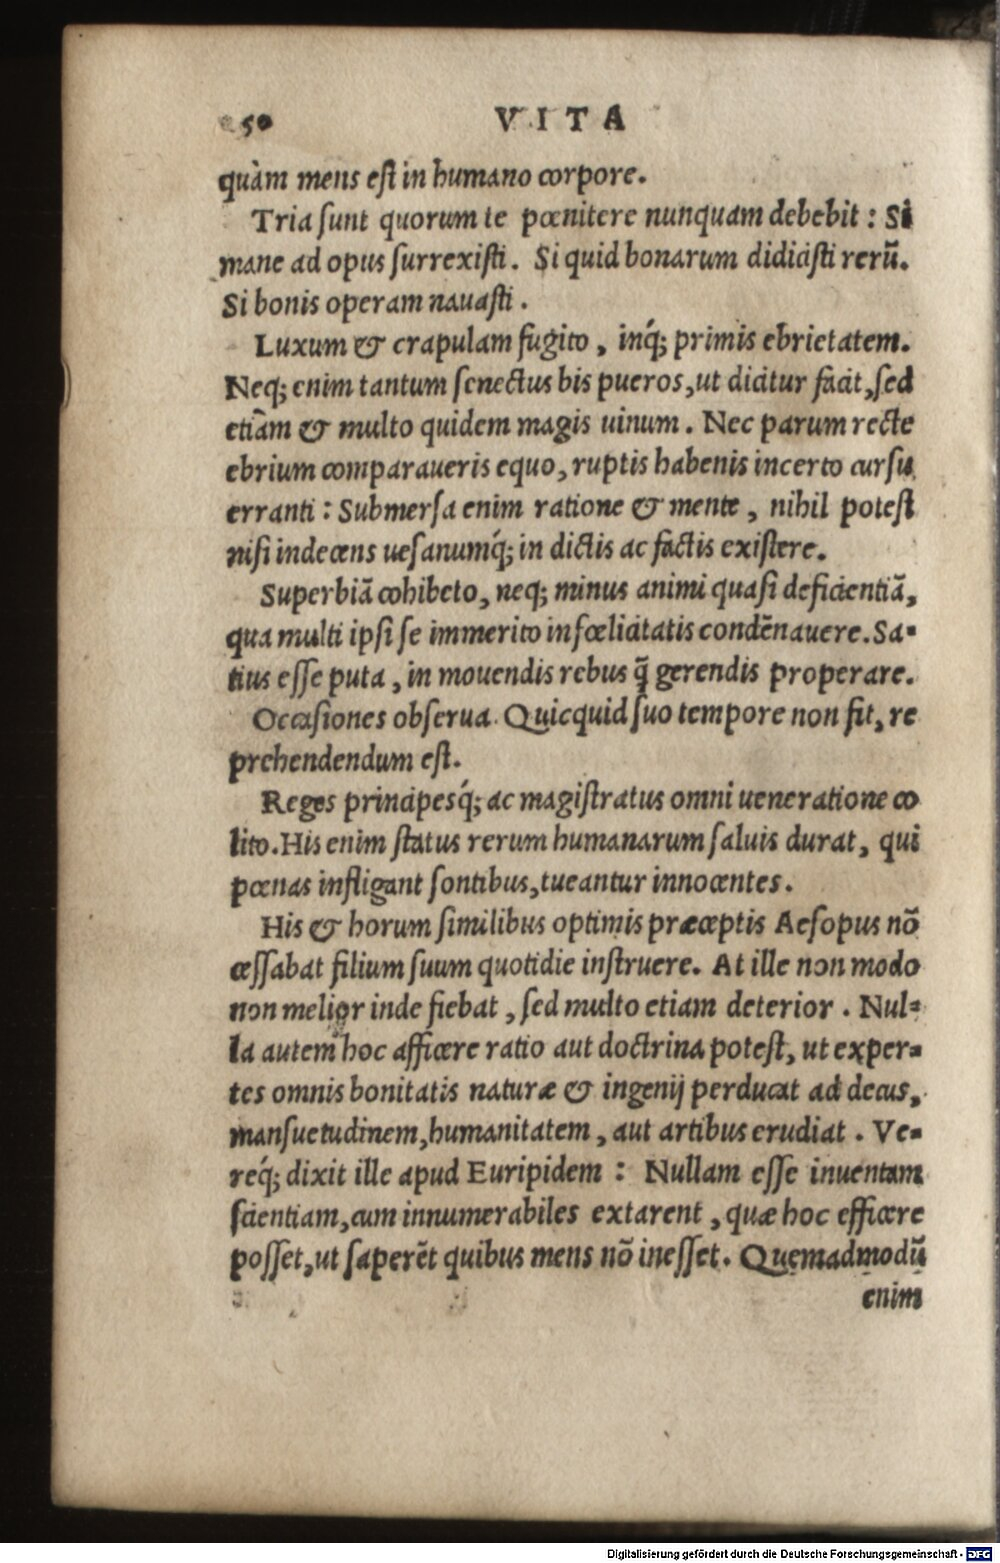 50 VITA
quàm mens est in humano corpore.
Tria sunt quorum te pœnitere nunquam debebit : Si
mane ad opus surrexisti. Si quid bonarum didicisti rerū.
Si bonis operam nauasti.
Luxum & crapulam fugito, inq́; primis ebrietatem.
Neq; enim tantum senectus bis pueros, ut dicitur facit, sed
etiàm & multo quidem magis uinum. Nec parum recte
ebrium comparaueris equo, ruptis habenis incerto cursu
erranti : Submersa enim ratione & mente, nihil potest
nisi indecens uesanumq́; in dictis ac factis existere.
Superbiā cohibeto, neq; minus animi quasi deficientiā,
qua multi ipsi se immerito infœlicitatis condēnauere. Sa-
tius esse puta, in mouendis rebus q̃ gerendis properare.
Occasiones obserua. Quicquid suo tempore non fit, re
prehendendum est.
Reges principesq́; ac magistratus omni ueneratione co
lito. His enim status rerum humanarum saluis durat, qui
pœnas infligant sontibus, tueantur innocentes.
His & horum similibus optimis præceptis Aesopus nō
cessabat filium suum quotidie instruere. At ille non modo
non melior inde fiebat, sed multo etiam deterior. Nul-
la autem hoc afficere ratio aut doctrina potest, ut exper-
tes omnis bonitatis naturæ & ingenij perducat ad decus,
mansuetudinem, humanitatem, aut artibus erudiat. Ve-
req́; dixit ille apud Euripidem : Nullam esse inuentam
scientiam, cum innumerabiles extarent, quæ hoc efficere
posset, ut saperēt quibus mens nō inesset. Quemadmodū
enim
Digitalisierung gefördert durch die Deutsche Forschungsgemeinschaft - DFG